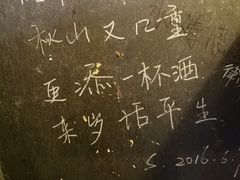 秋山又几重
更添一杯酒
来岁话平生
S. 2016.6.